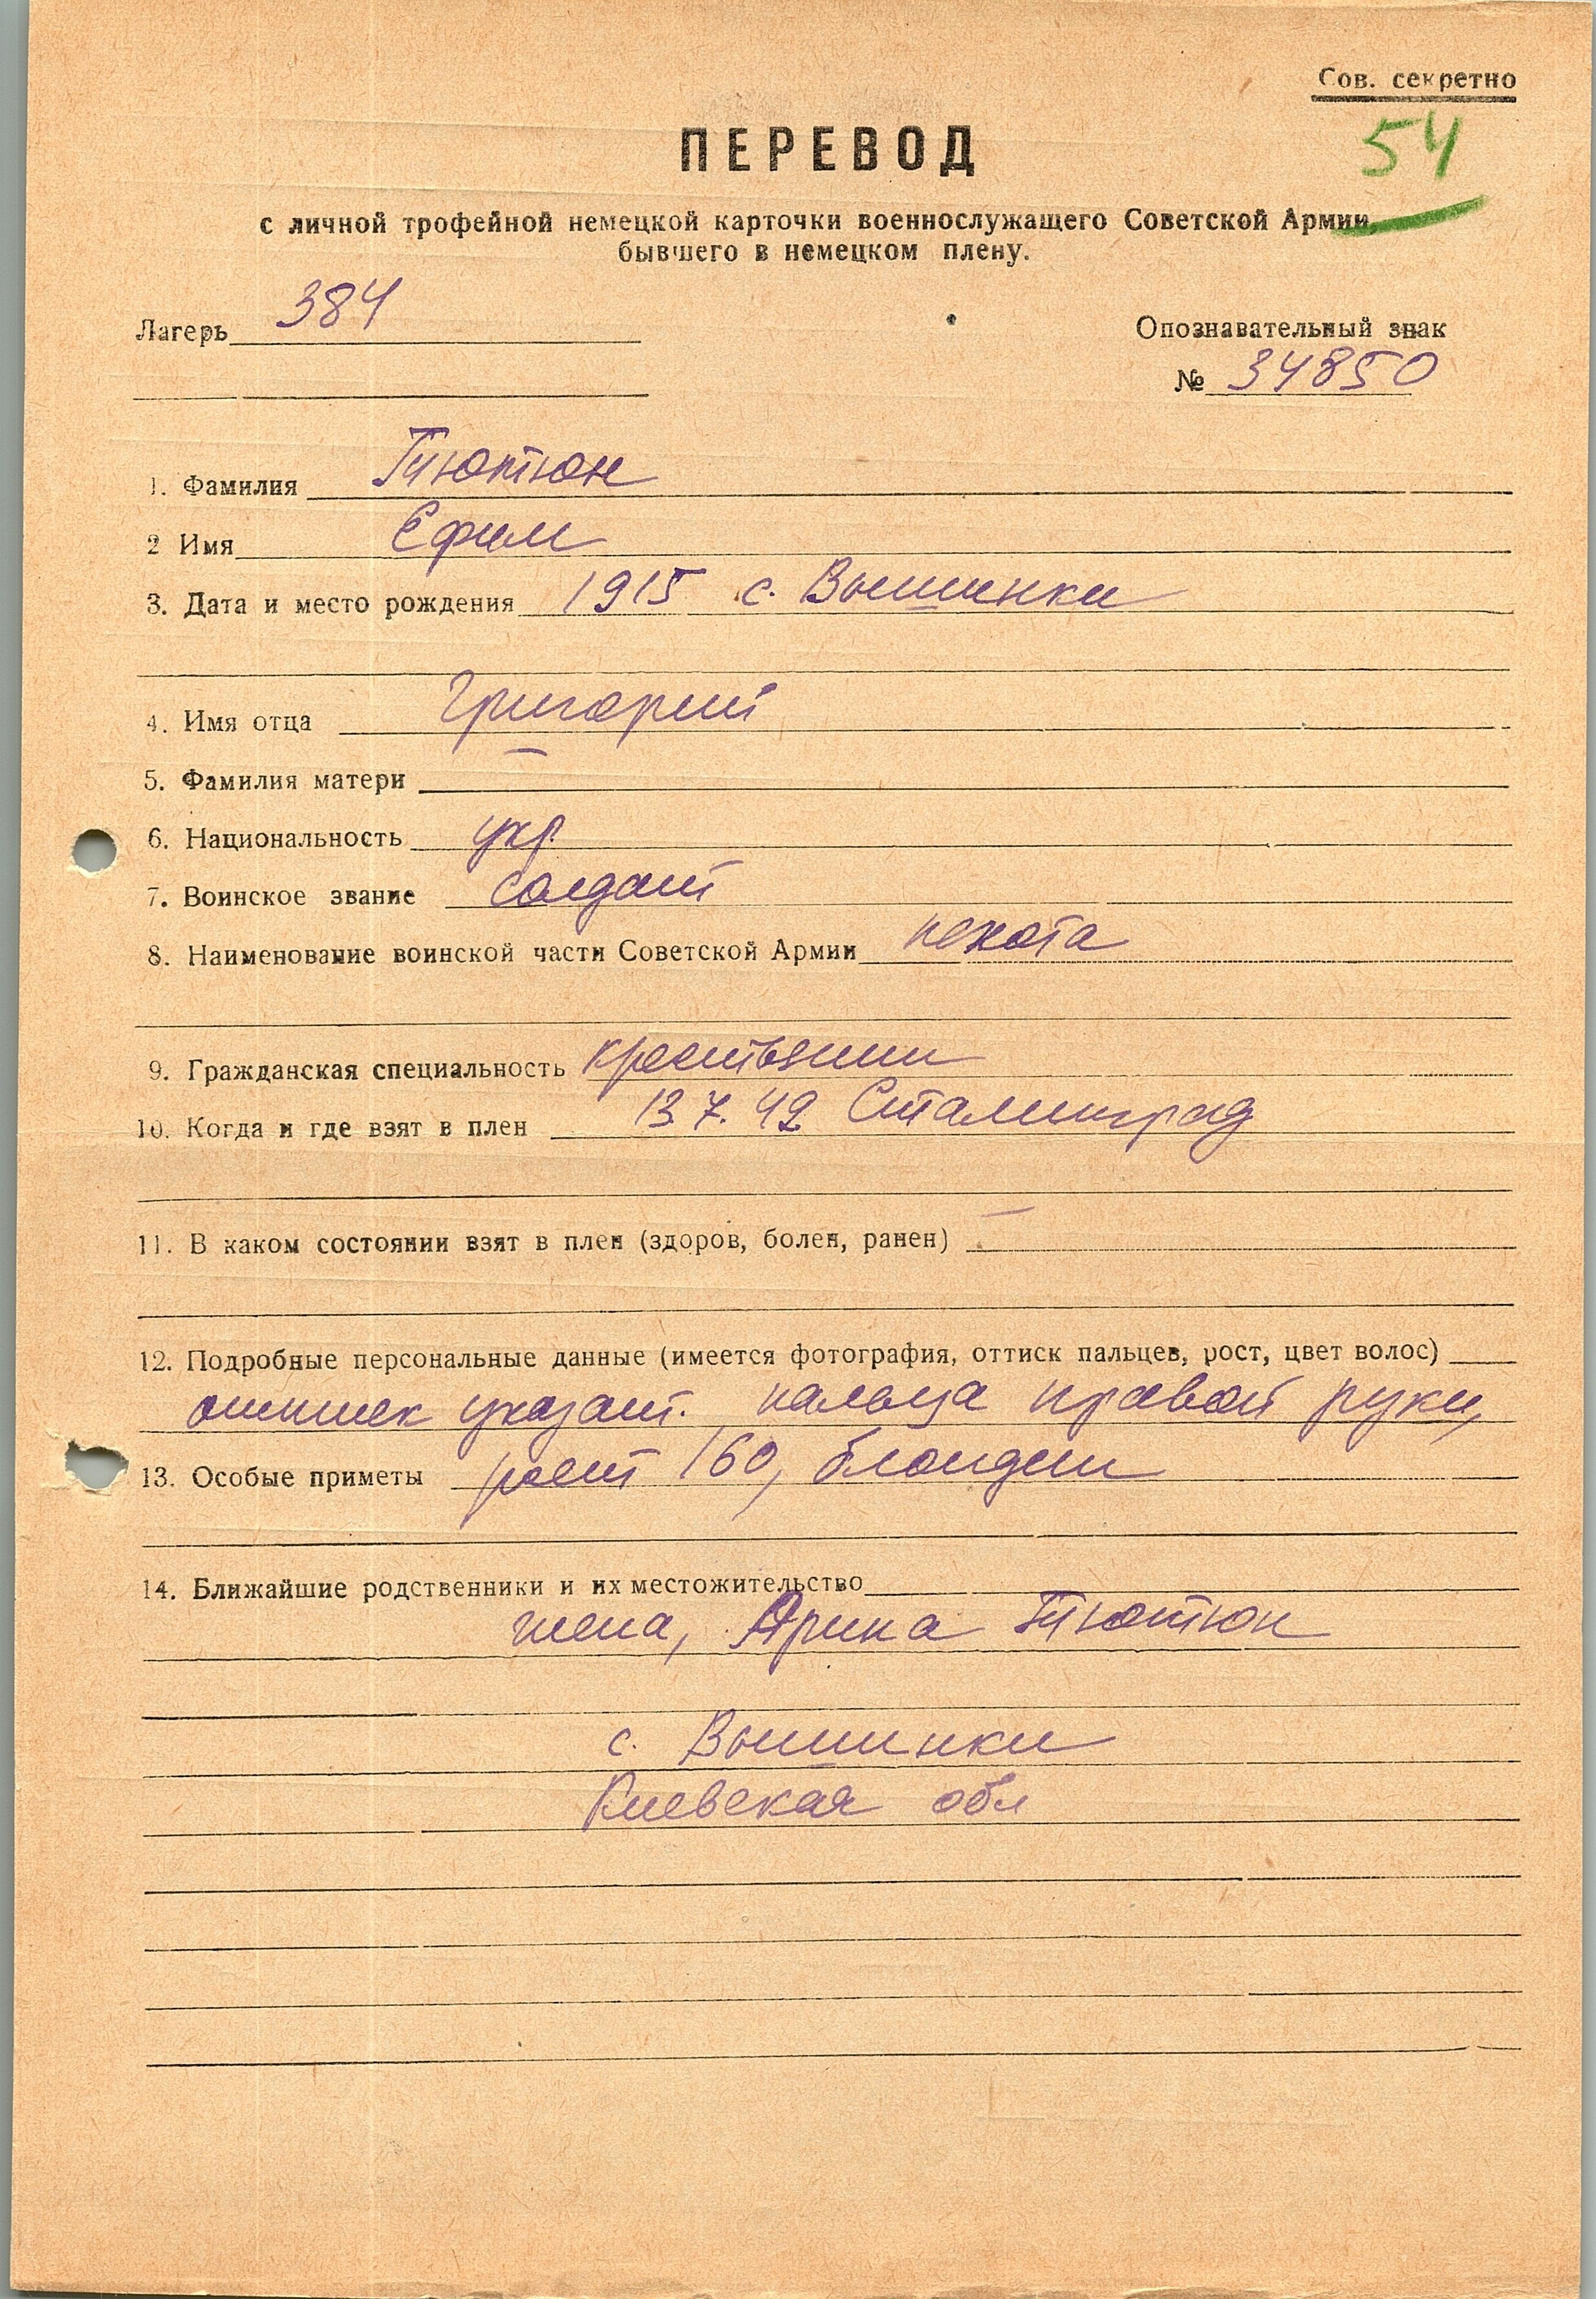 Сов. секретно
54
ПЕРЕВОД
с личной трофейной немецкой карточки военнослужащего Советской Армии,
бывшего в немецком плену.
Лагерь 384
Опознавательный знак
№ 34850
1. Фамилия Тютюн
2 Имя Ефим
3. Дата и место рождения 1915 с. Вышинки
4. Имя отца Григорий
5. Фамилия матери —
6. Национальность укр.
7. Воинское звание солдат
8. Наименование воинской части Советской Армии пехота
9. Гражданская специальность крестьянин
10. Когда и где взят в плен 13.7.42 Сталинград
11. В каком состоянии взят в плен (здоров, болен, ранен) —
12. Подробные персональные данные (имеется фотография, оттиск пальцев, рост, цвет волос)
оттиск указат. пальца правой руки,
13. Особые приметы рост 160, блондин
14. Ближайшие родственники и их местожительство
жена, Арина Тютюн
с. Вышинки
Киевская обл